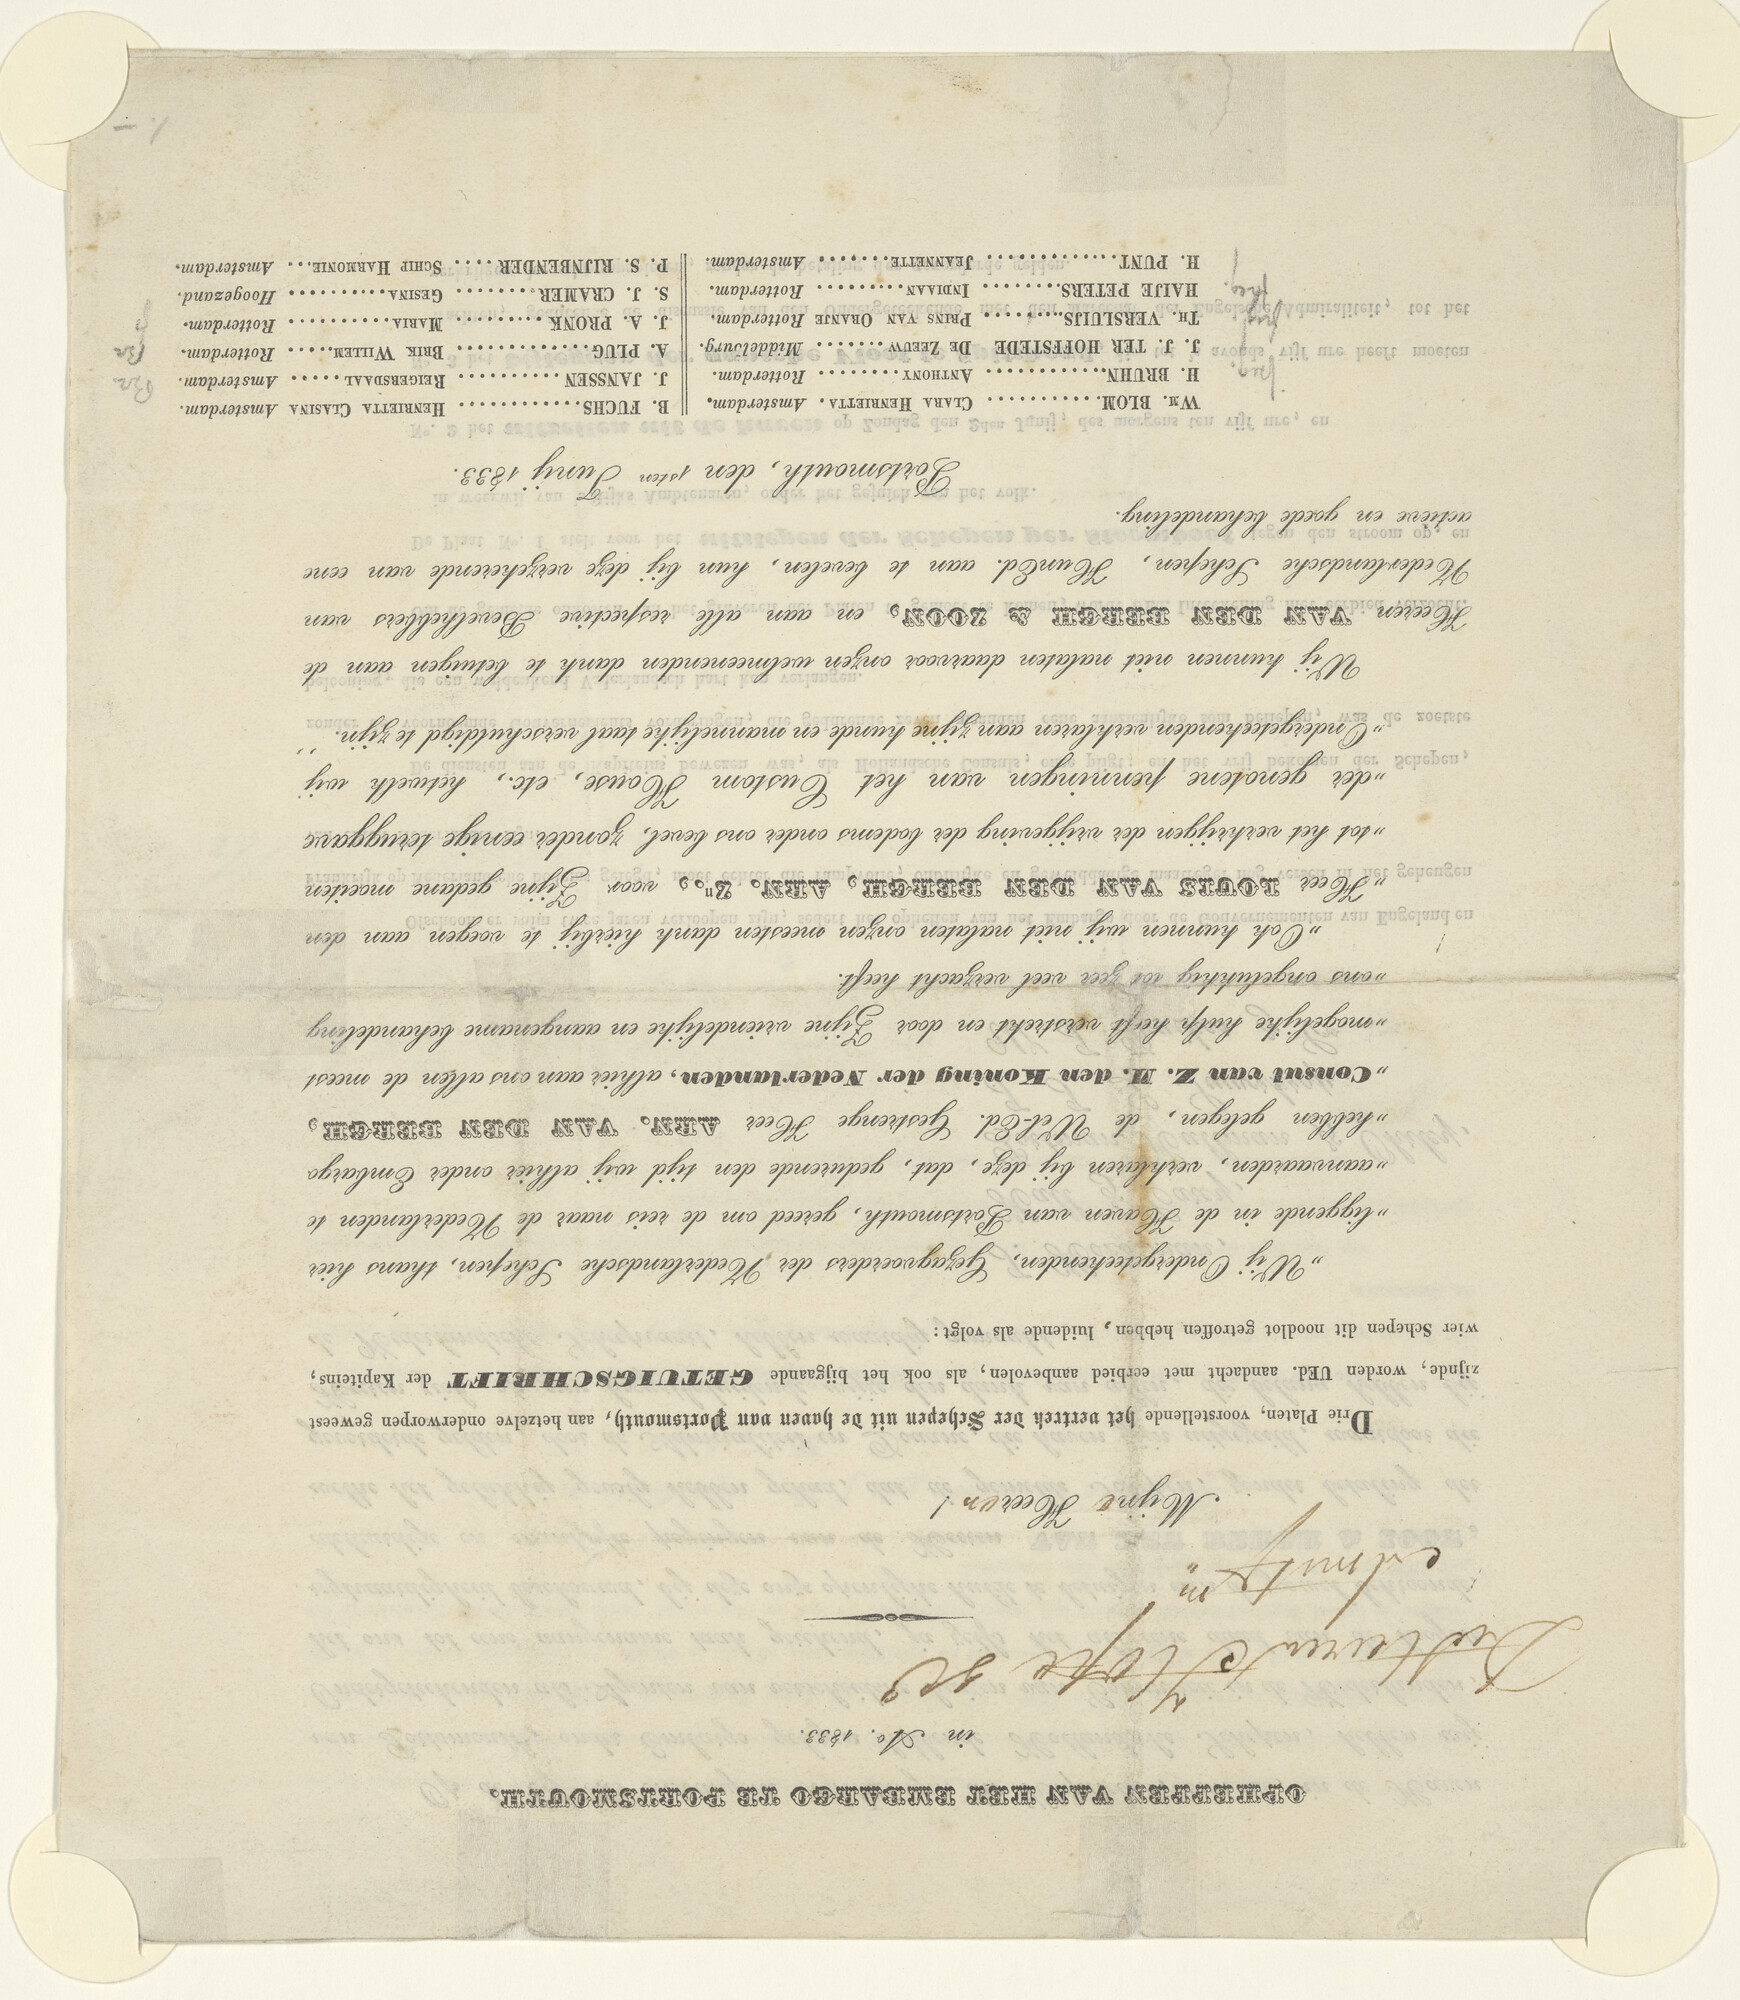 OPHEFFEN VAN HET EMBARGO TE PORTSMOUTH.
in Ao. 1833.
Mijne Heeren!
Drie Platen, voorstellende het vertrek der Schepen uit de haven van Portsmouth, aan hetzelve onderworpen geweest
zijnde, worden UEd. aandacht met eerbied aanbevolen, als ook het bijgaande GETUIGSCHRIFT der Kapiteins,
wier Schepen dit noodlot getroffen hebben, luidende als volgt:
„Wij Ondergeteekenden, Gezagvoerders der Nederlandsche Schepen, thans hier
„liggende in de Haven van Portsmouth, gereed om de reis naar de Nederlanden te
„aanvaarden, verklaren bij deze, dat, gedurende den tijd wij alhier onder Embargo
„hebben gelegen, de Wel-Ed. Gestrenge Heer ARN. VAN DEN BERGH,
„Consul van Z. M. den Koning der Nederlanden, alhier aan ons allen de meest
„mogelijke hulp heeft verstrekt en door Zijne vriendelijke en aangename behandeling
„ons ongelukkig lot zeer veel verzacht heeft.
„Ook kunnen wij niet nalaten onzen meesten dank hierbij te voegen aan den
„Heer LOUIS VAN DEN BERGH, ARN. Zn., voor Zijne gedane moeiten
„tot het verkrijgen der vrijgeving der bodems onder ons bevel, zonder eenige teruggave
„der genotene penningen van het Custom House, etc., hetwelk wij
„Ondergeteekenden verklaren aan zijne kunde en mannelijke taal verschuldigd te zijn.”
Wij kunnen niet nalaten daarvoor onzen welmeenenden dank te betuigen aan de
Heeren VAN DEN BERGH & ZOON, en aan alle respective Bevelhebbers van
Nederlandsche Schepen, HunEd. aan te bevelen, hun bij deze verzekerende van eene
actieve en goede behandeling.
Portsmouth, den 1sten Junij 1833.
Wm. BLOM.......... Clara Henrietta. Amsterdam.
H. BRUHN............ Anthony........ Rotterdam.
J. J. TER HOFFSTEDE De Zeeuw....... Middelburg.
Th. VERSLUIJS........ Prins van Oranje Rotterdam.
HAIJE PETERS........ Indiaan......... Rotterdam.
H. PUNT............. Jeannette....... Amsterdam.
B. FUCHS............ Henrietta Clasina Amsterdam.
J. JANSSEN.......... Reigersdaal..... Amsterdam.
A. PLUG............. Brik Willem..... Rotterdam.
J. A. PRONK......... Maria.......... Rotterdam.
S. J. CRAMER........ Gesina.......... Hoogezand.
P. S. RIJNBENDER.... Schip Harmonie... Amsterdam.